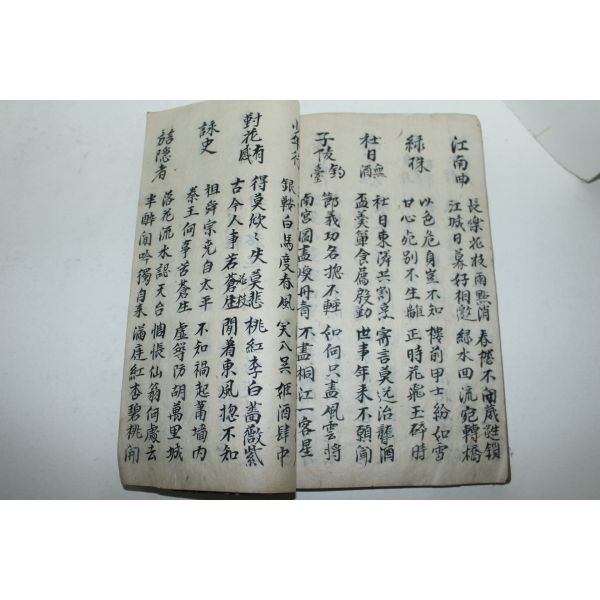 江南曲
長樂花枝雨點消 春樓不閉葳蕤鎖
江城日暮好相邀 綠水回流宛轉橋
綠珠
以色危身豈不知 樓前甲士紛如雪
甘心死別不生離 正時花飛玉碎時
社日無酒
社日東隣共割烹 寄言莫送治聾酒
盃羹簞食屬殷勤 世事年來不願聞
子陵釣臺
節義功名摠不輕 如何只畫風雲將
南宮圖畫煥丹靑 不畫桐江一客星
少年行
銀鞍白馬度春風 笑入吳姬酒肆中
對花有感
得莫欣〻失莫悲 桃紅李白薔薇紫
古今人事若蒼生花枝 問着東風揔不知
詠史
祖舜宗堯自太平 不知禍起蕭墻內
秦王何事苦蒼生 虛築防胡萬里城
訪隱者
落花流水認天台 惆悵仙翁何處去
半醉閑吟獨自來 滿庭紅杏碧桃開